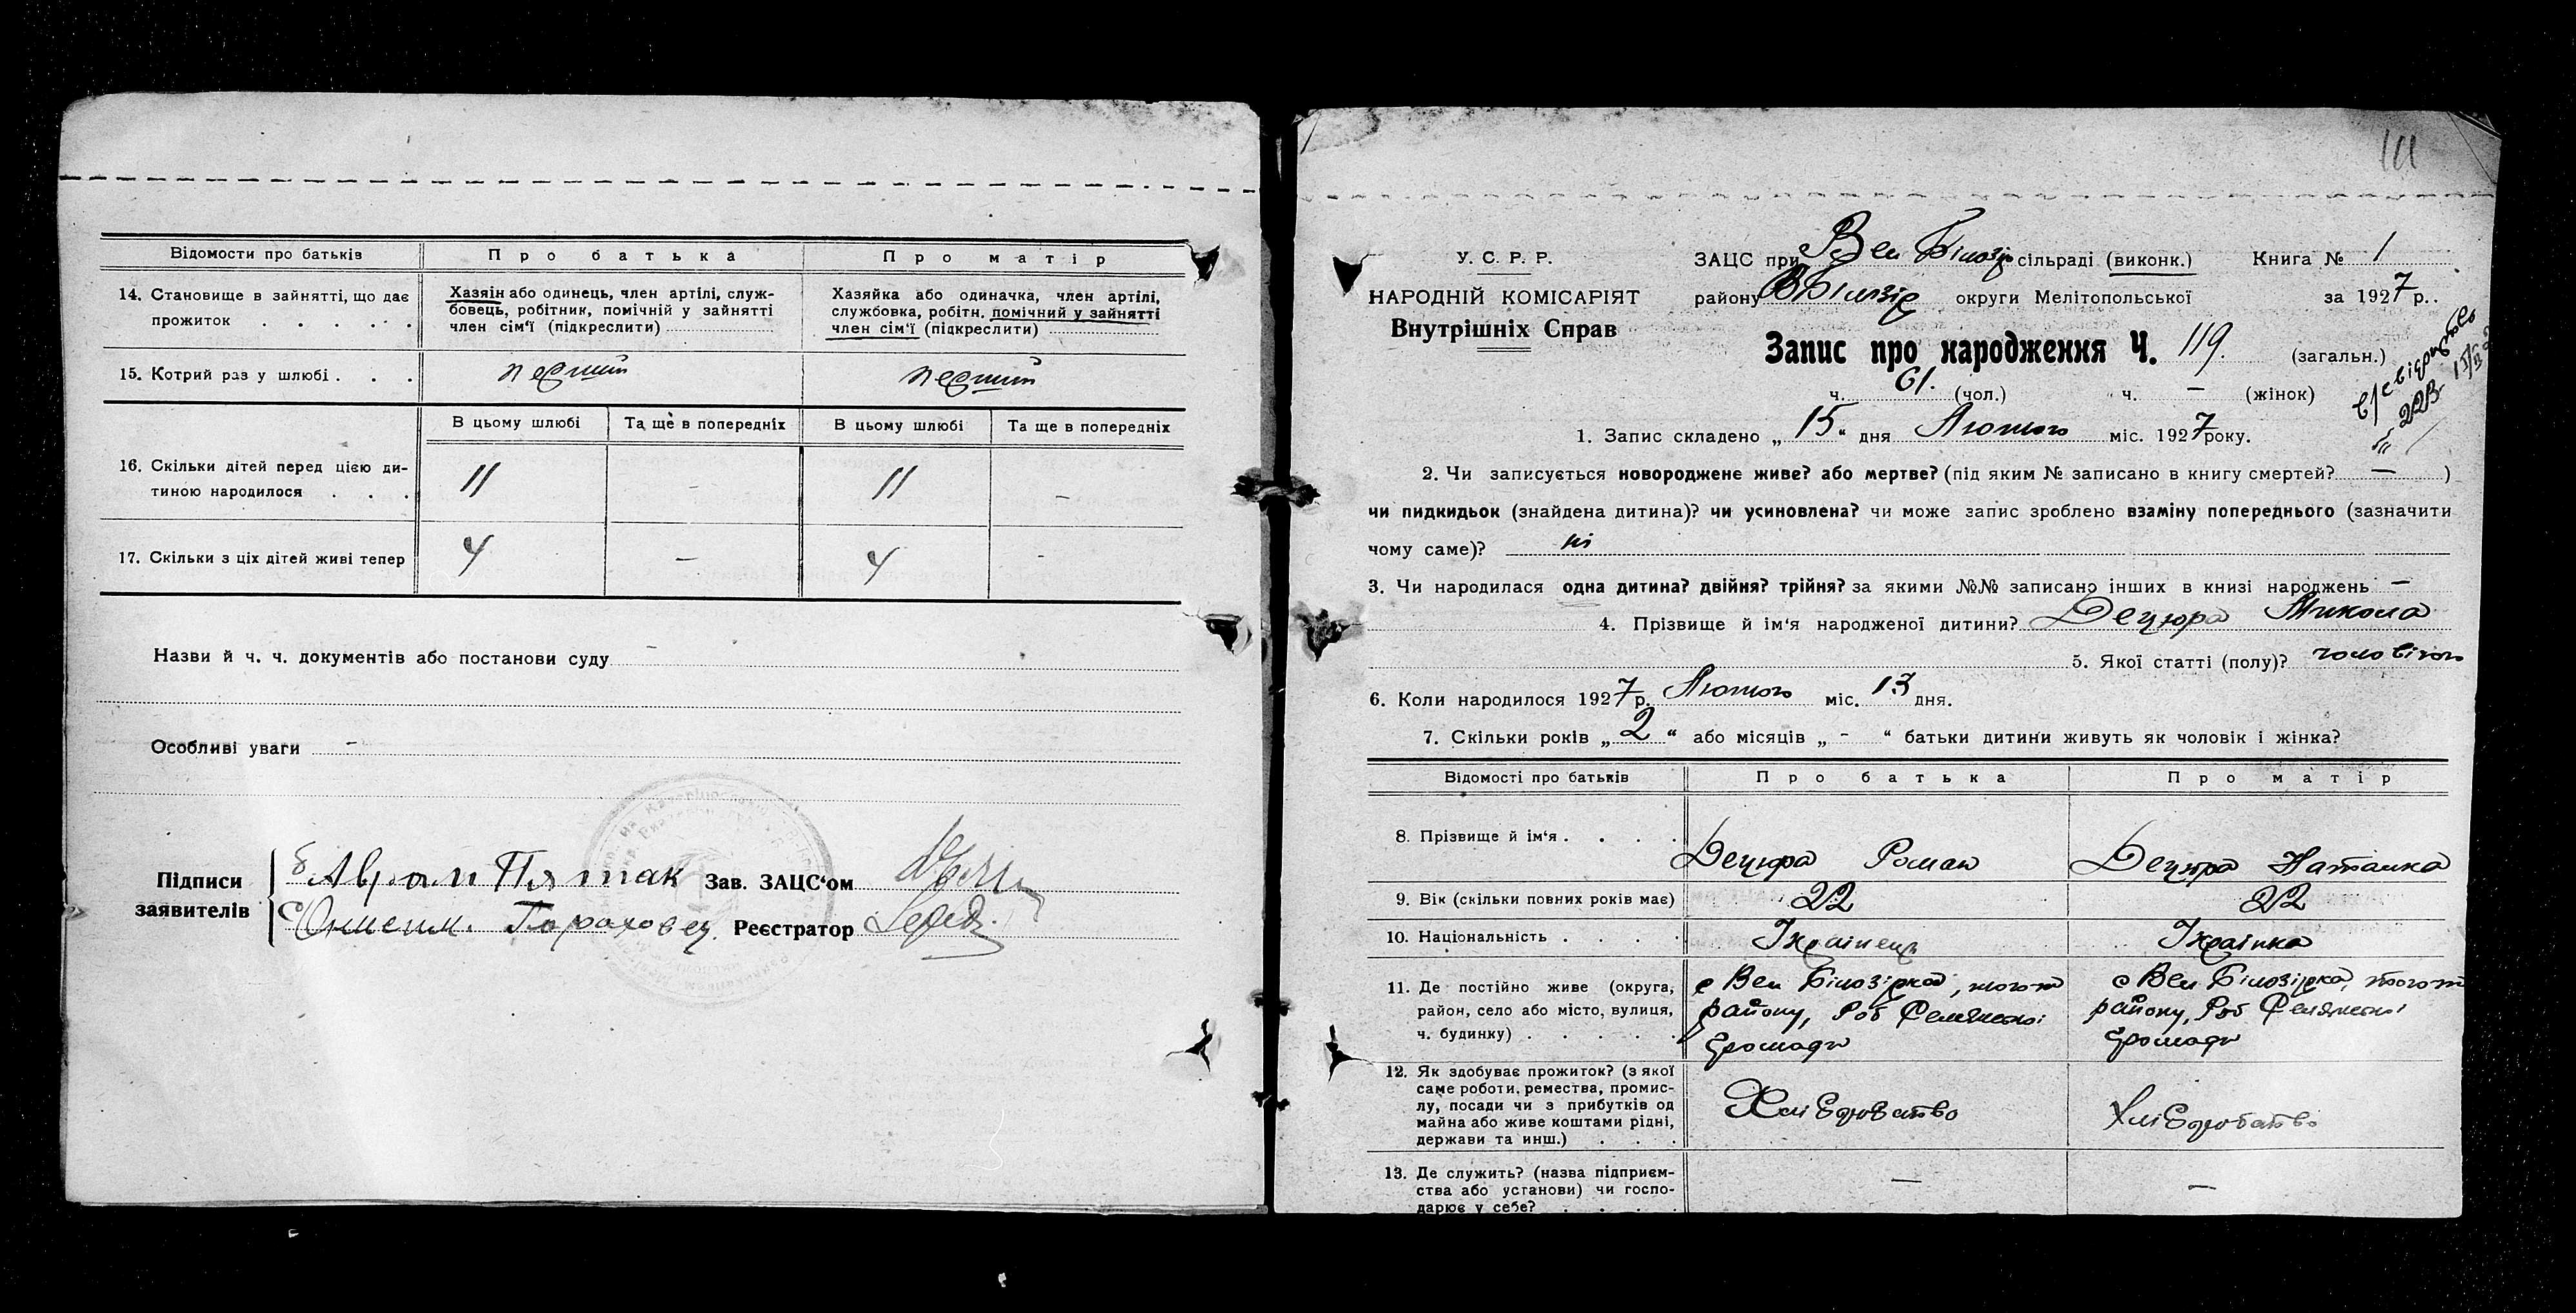 Відомости про батьків Про батька Про матір
14. Становище в зайнятті, що дає прожиток . . . . .
Хазяін або одинець, член артілі, служ-
бовець, робітник, помічній у зайнятті
член сім'ї (підкреслити)
Хазяйка або одиначка, член артілі,
службовка, робітн. помічний у зайнятті
член сім'ї (підкреслити)
15. Котрий раз у шлюбі . . . перший перший
В цьому шлюбі Та ще в попередніх В цьому шлюбі Та ще в попередніх
16. Скільки дітей перед цією ди-
тиною народилося . . . 11 – 11 –
17. Скільки з ціх дітей живі тепер 4 – 4 -
Назви й ч. ч. документів або постанови суду –
Особливі уваги –
Підписи
заявителів
Аврам Пятак Зав. ЗАЦС'ом
Реєстратор
111
У. С. Р. Р.
НАРОДНІЙ КОМІСАРІЯТ
Внутрішніх Справ
ЗАЦС при Вел Білозір сільраді (виконк.) Книга № 1
району ВБілозір округи Мелітопольської за 1927 р.
Запис про народження Ч. 119. (загальн.)
ч. 61. (чол.) ч. – (жінок)
223
1. Запис складено „ 15 “ дня Лютого міс. 1927 року.
2. Чи записується новороджене живе? або мертве? (під яким № записано в книгу смертей? — )
чи пидкидьок (знайдена дитина)? чи усиновлена? чи може запис зроблено взаміну попереднього (зазначити
чому саме)? ні
3. Чи народилася одна дитина? двійня? трійня? за якими №№ записано інших в книзі народжень –
4. Прізвище й ім'я народженої дитини? Децюра Микола
5. Якої статті (полу)? чоловічого
6. Коли народилося 1927 р. Лютого міс. 13 дня.
7. Скільки років „ 2 “ або місяців „ - “ батьки дитини живуть як чоловік і жінка?
Відомості про батьків Про батька Про матір
8. Прізвище й ім'я . . . . Децюра Роман Децюра Наталка
9. Вік (скільки повних років має) 22 22
10. Національність . . . . Українець Українка
11. Де постійно живе (округа,
район, село або місто, вулиця,
ч. будинку) . . . . .
с Вел Білозірка, того-ж
району, Роб Селянської
Громади
с Вел Білозірка, того-ж
району, Роб Селянської
Громади
12. Як здобуває прожиток? (з якої
саме роботи, ремества, промис-
лу, посади чи з прибутків од
майна або живе коштами рідні,
держави та инш.) . . .
Хліборобство Хліборобство
13. Де служить? (назва підприєм-
ства або установи) чи госпо-
дарює у себе? . . . . — —